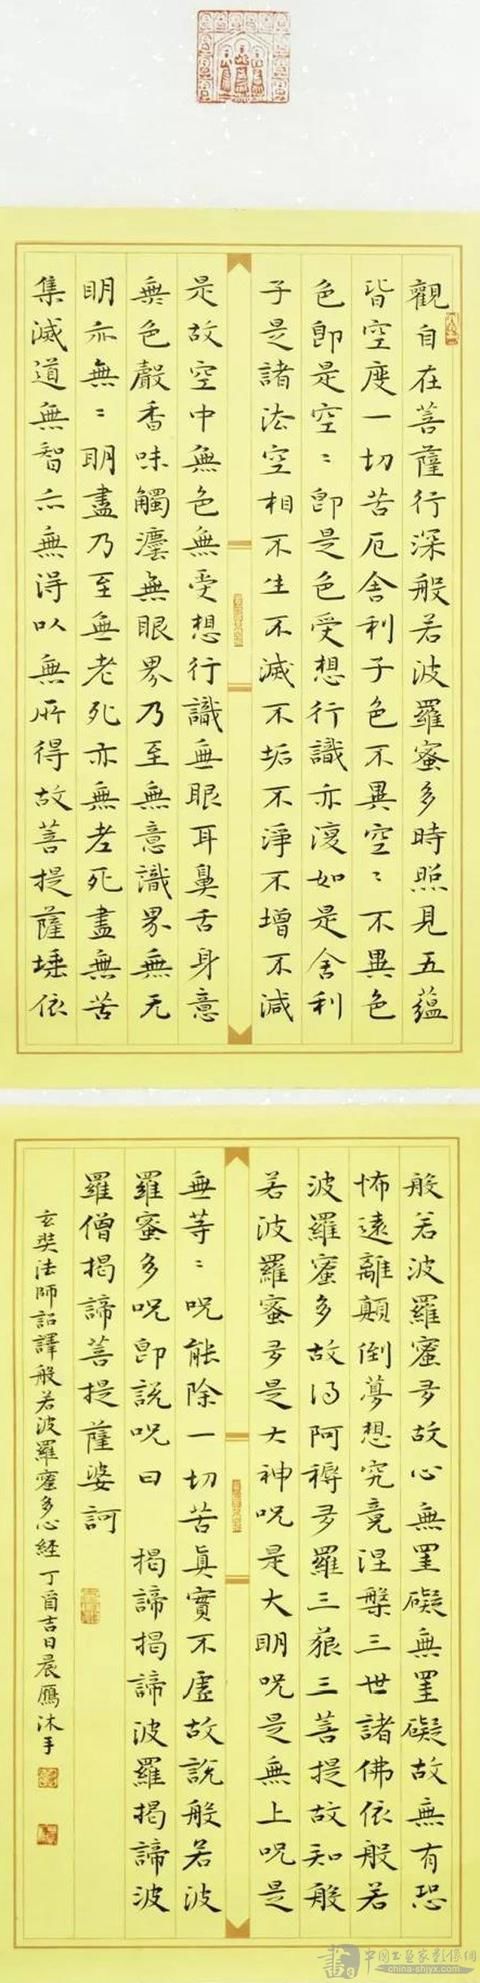 觀自在菩薩行深般若波羅蜜多時照見五蘊
皆空度一切苦厄舍利子色不異空〻不異色
色即是空〻即是色受想行識亦復如是舍利
子是諸法空相不生不滅不垢不淨不增不減
是故空中無色無受想行識無眼耳鼻舌身意
無色聲香味觸灋無眼界乃至無意識界無无
明亦無〻明盡乃至無老死亦無老死盡無苦
集滅道無智亦無得以無所得故菩提薩埵依
般若波羅蜜多故心無罣礙無罣礙故無有恐
怖遠離顛倒夢想究竟涅槃三世諸佛依般若
波羅蜜多故得阿耨多羅三藐三菩提故知般
若波羅蜜多是大神呪是大明呪是無上呪是
無等〻呪能除一切苦真實不虛故說般若波
羅蜜多呪即說呪曰 揭諦揭諦波羅揭諦波
羅僧揭諦菩提薩婆訶
玄奘法師詔譯般若波羅蜜多心經丁酉吉日晨鴈沐手
china-shjyx.com